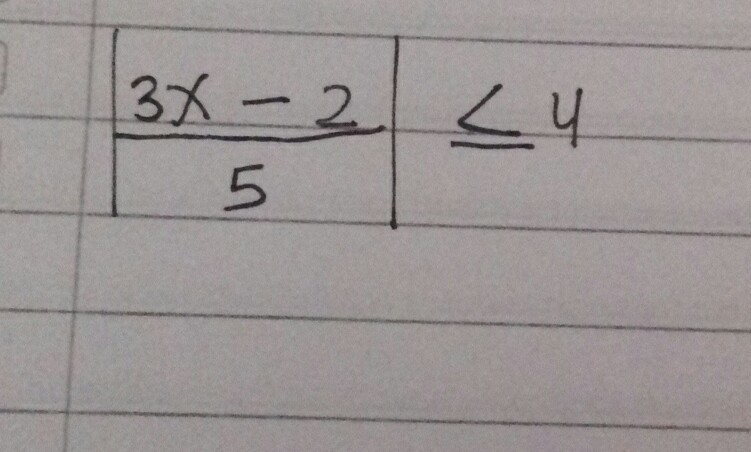 |3x - 2 / 5| ≤ 4